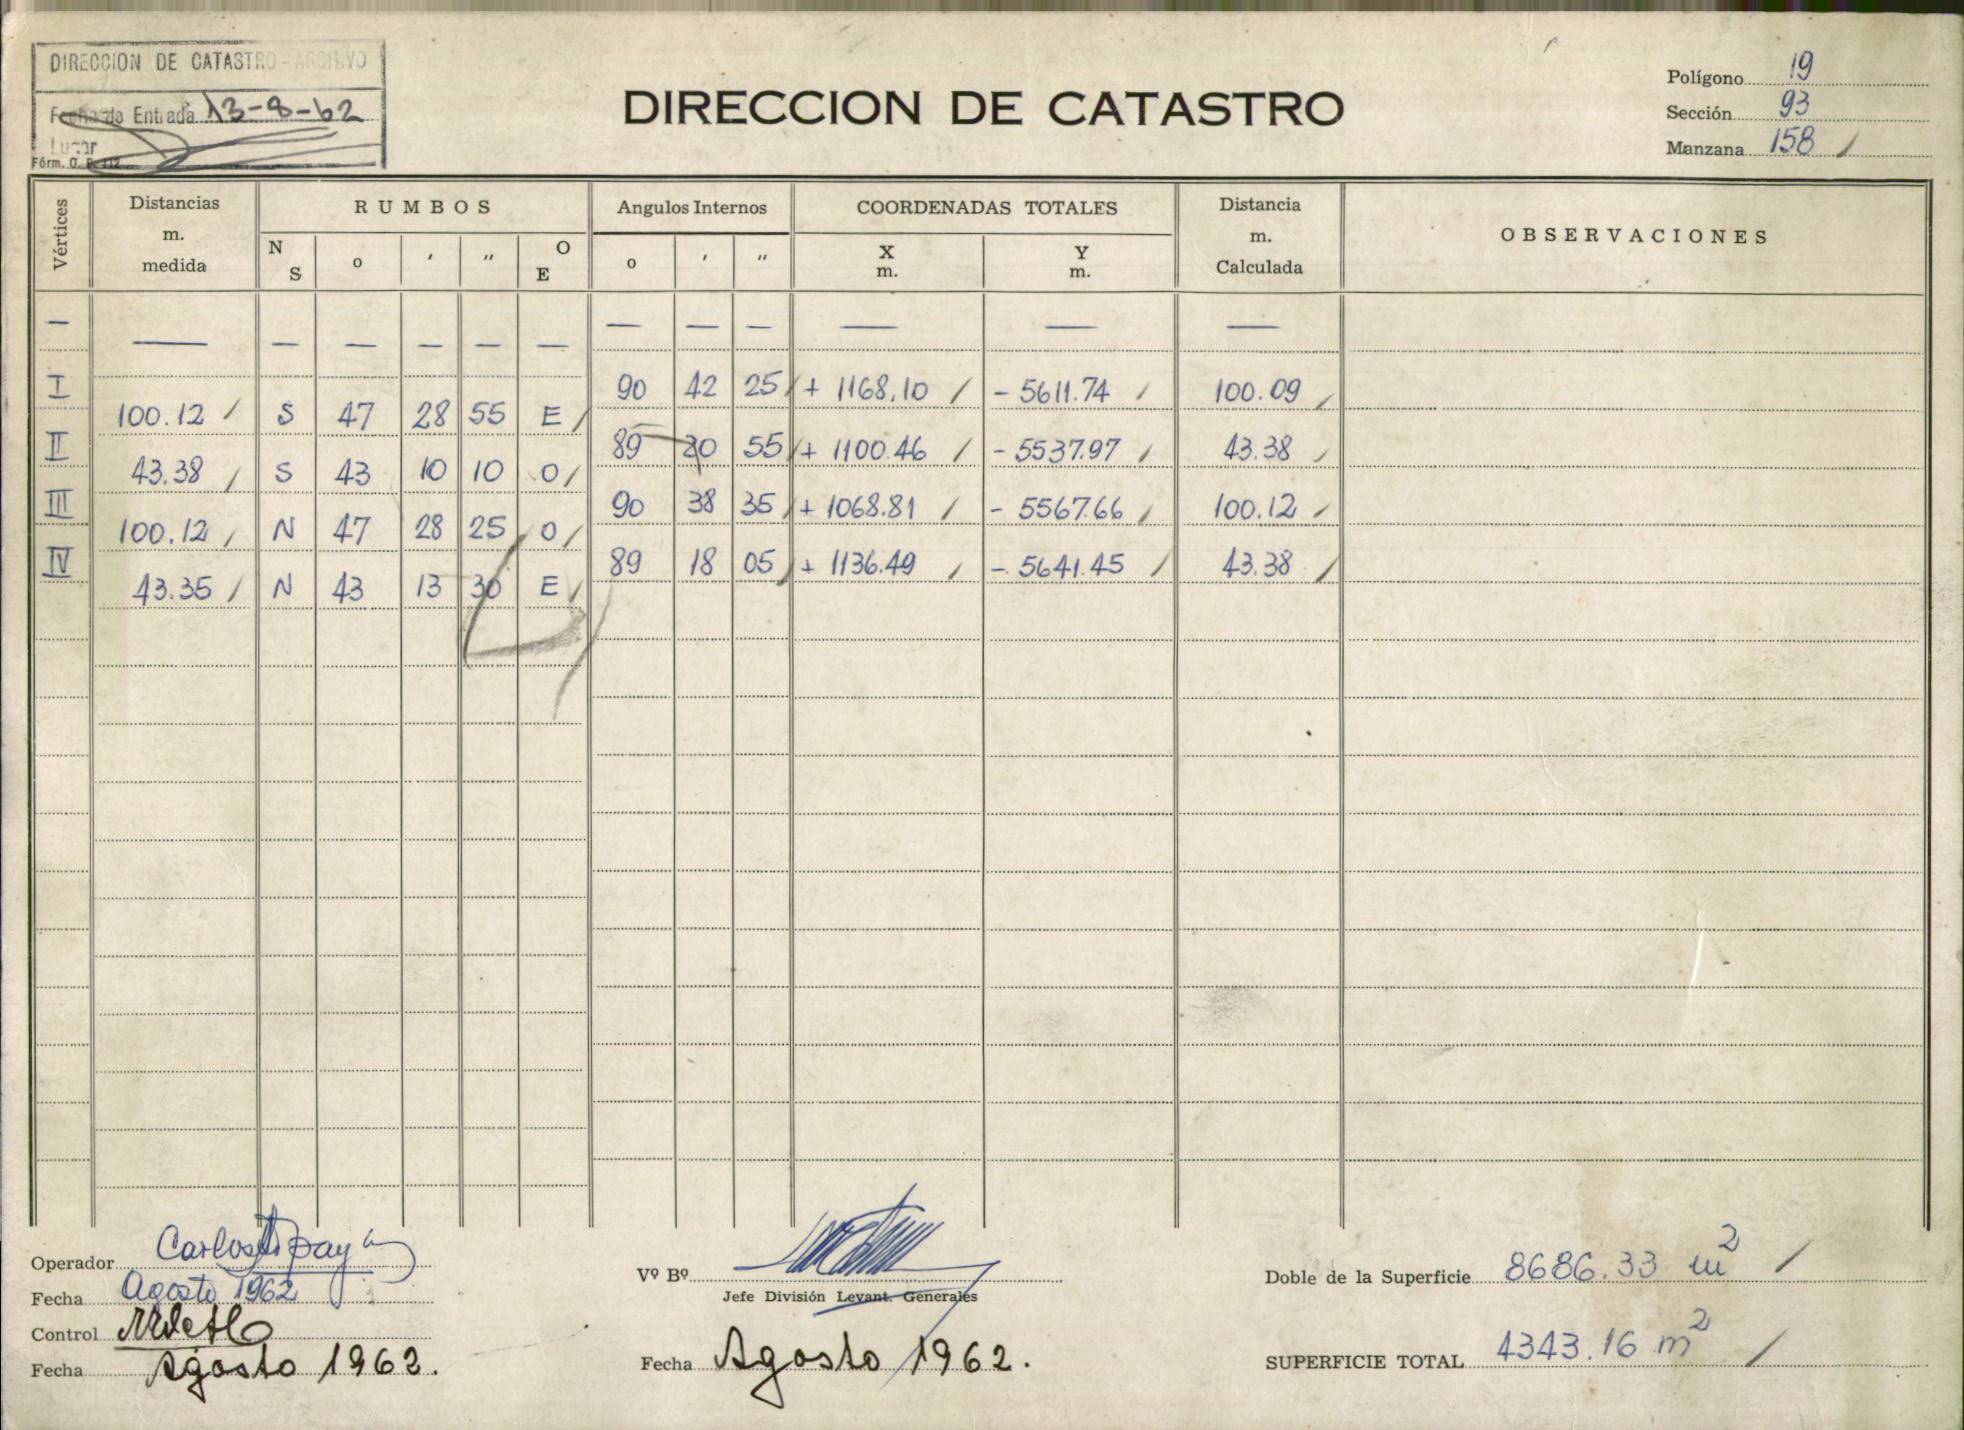 DIRECCION DE CATASTRO - ARCHIVO
Fecha de Entrada 13-8-62
Lugar
Fórm. O. P. 112
DIRECCION DE CATASTRO
Polígono 19
Sección 93
Manzana 158 /
Vértices
Distancias m. medida
RUMBOS
N S o ' " O E
Angulos Internos
o ' "
COORDENADAS TOTALES
X m. Y m.
Distancia m. Calculada
OBSERVACIONES
— — — — — — — — — — — —
I 90 42 25 / + 1168.10 / - 5611.74 / 100.09 /
100.12 / S 47 28 55 E /
II 89 20 55 / + 1100.46 / - 5537.97 / 43.38 /
43.38 / S 43 10 10 O /
III 90 38 35 / + 1068.81 / - 5567.66 / 100.12 /
100.12 / N 47 28 25 O /
IV 89 18 05 / + 1136.49 / - 5641.45 / 43.38 /
43.35 / N 43 13 30 E /
Operador Carlos
Fecha Agosto 1962
Control
Fecha Agosto 1962.
Vº Bº
Jefe División Levant. Generales
Fecha Agosto 1962.
Doble de la Superficie 8686.33 m2 /
SUPERFICIE TOTAL 4343.16 m2 /